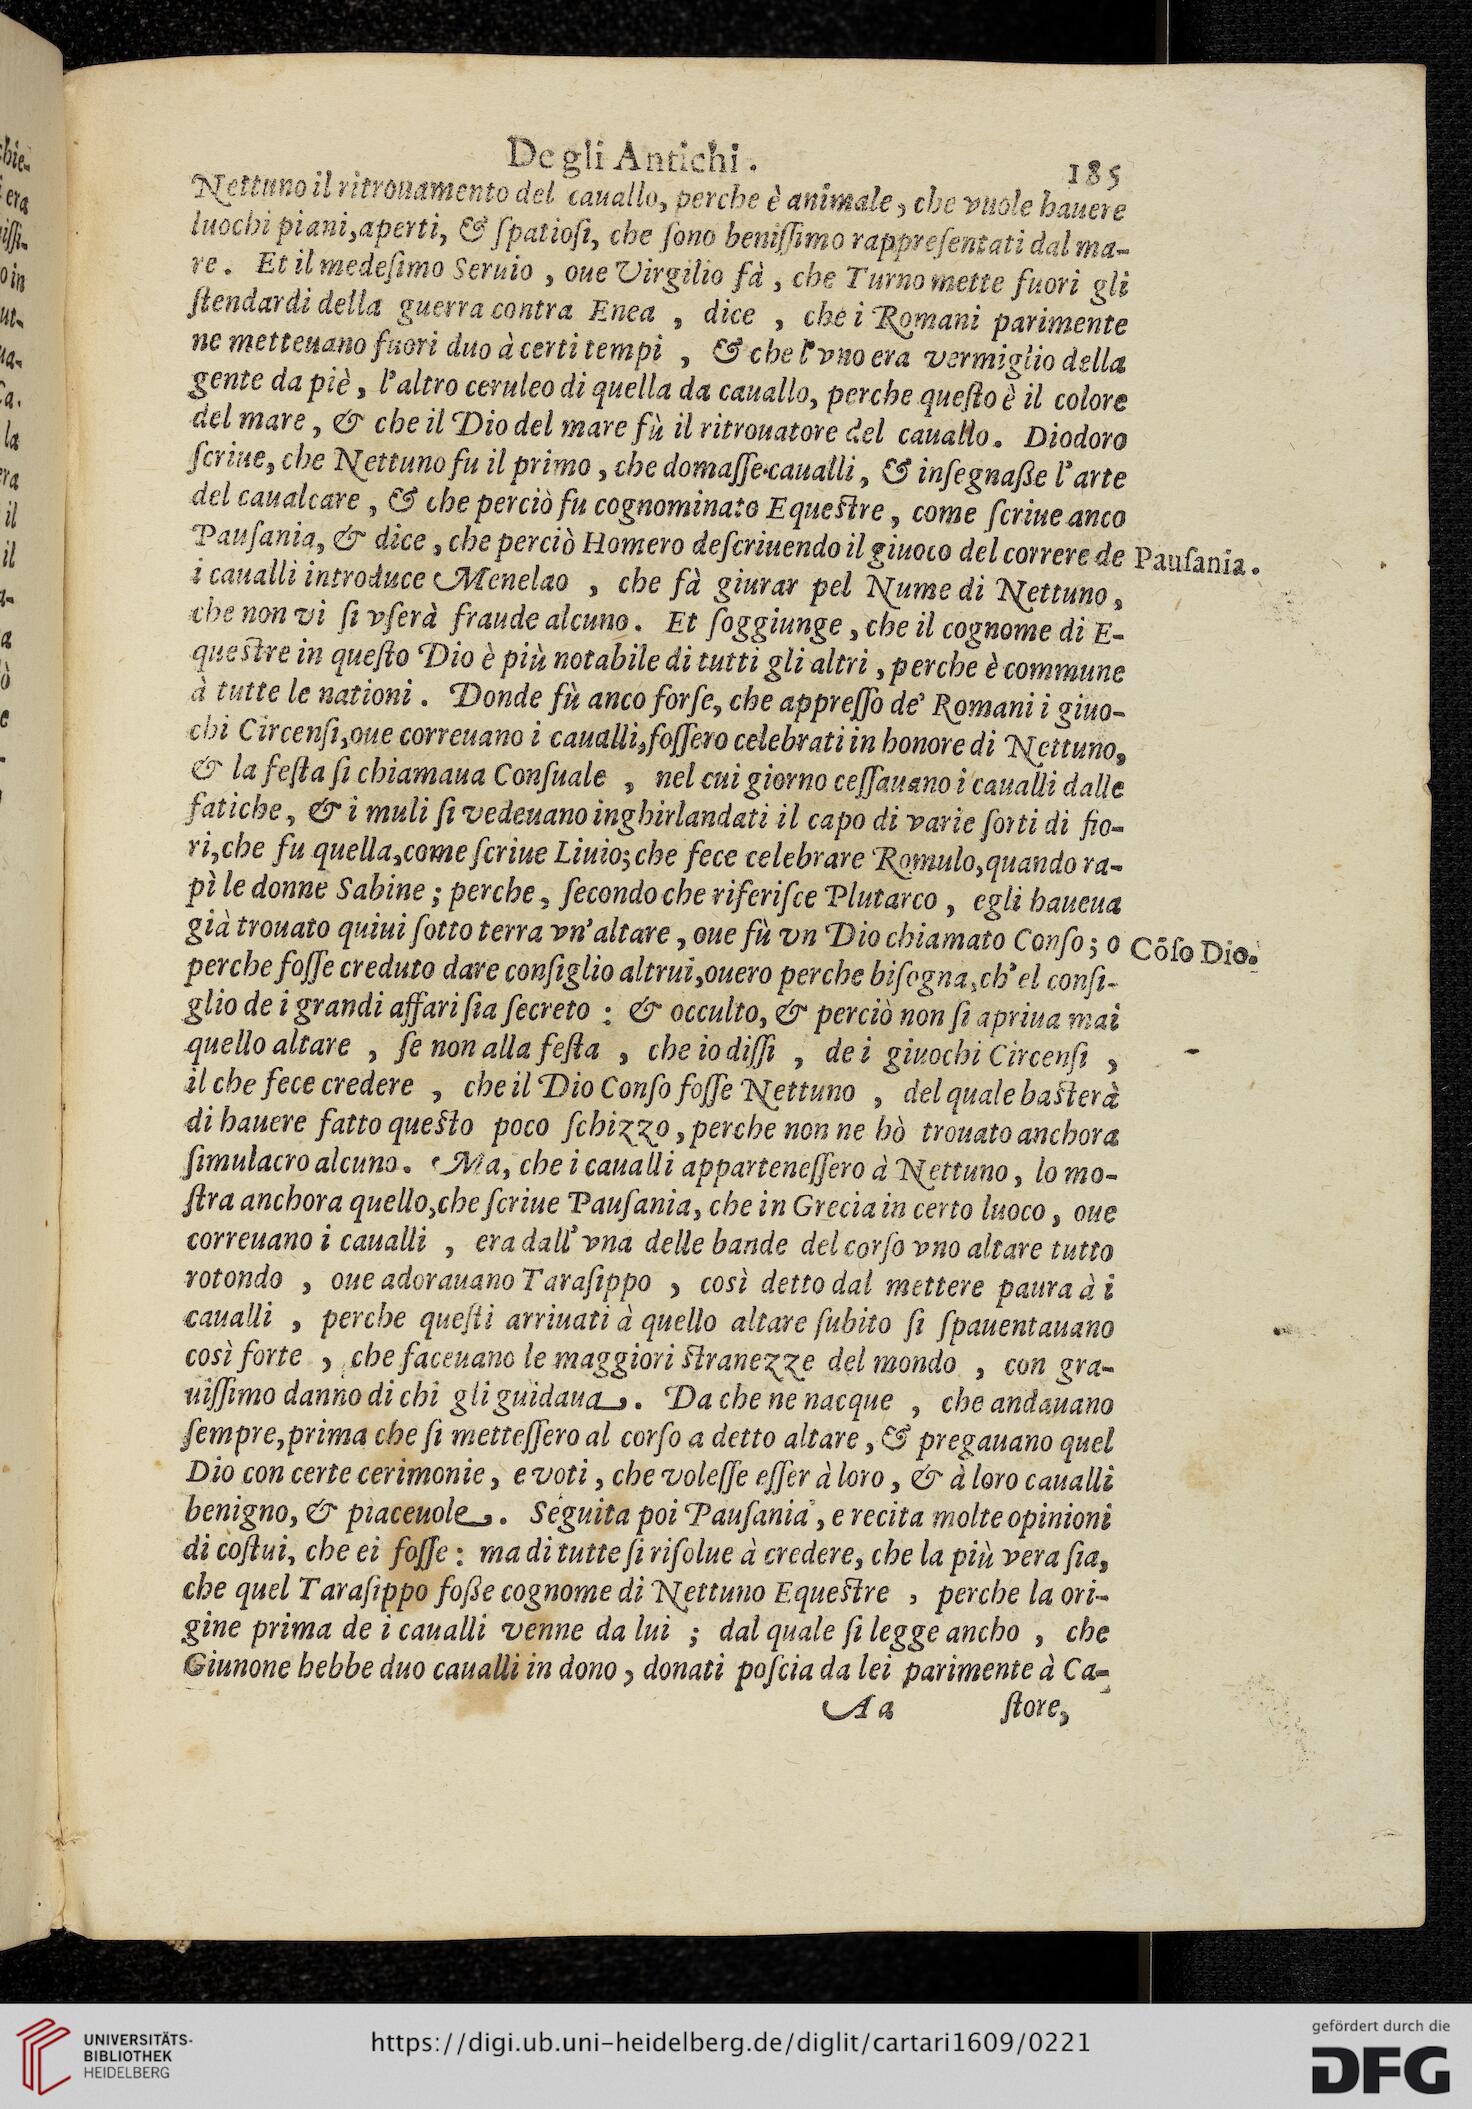 Degli Antichi. 185
Nettuno il ritrouamento del cauallo, perche è animale, che vuole hauere
luochi piani, aperti, & ſpatioſi, che ſono beniſſimo rappreſentati dal ma-
re. Et il medeſimo Seruio, oue Virgilio fà, che Turno mette fuori gli
ſtendardi della guerra contra Enea, dice, che i Romani parimente
ne metteuano fuori duo à certi tempi, & che l'vno era vermiglio della
gente da piè, l'altro ceruleo di quella da cauallo, perche queſto è il colore
del mare, & che il Dio del mare fù il ritrouatore del cauallo. Diodoro
ſcriue, che Nettuno fu il primo, che domaſſe caualli, & inſegnaße l'arte
del caualcare, & che perciò fu cognominato Equeſtre, come ſcriue anco
Pauſania, & dice, che perciò Homero deſcriuendo il giuoco del correre de Pauſania.
i caualli introduce Menelao, che fà giurar pel Nume di Nettuno,
che non vi ſi vſerà fraude alcuno. Et ſoggiunge, che il cognome di E-
queſtre in queſto Dio è più notabile di tutti gli altri, perche è commune
à tutte le nationi. Donde fù anco forſe, che appreſſo de' Romani i giuo-
chi Circenſi, oue correuano i caualli, foſſero celebrati in honore di Nettuno,
& la feſta ſi chiamaua Conſuale, nel cui giorno ceſſauano i caualli dalle
fatiche, & i muli ſi vedeuano inghirlandati il capo di varie ſorti di fio-
ri, che fu quella, come ſcriue Liuio; che fece celebrare Romulo, quando ra-
pì le donne Sabine; perche, ſecondo che riferiſce Plutarco, egli haueua
già trouato quiui ſotto terra vn'altare, oue fù vn Dio chiamato Conſo; o Cõſo Dio.
perche foſſe creduto dare conſiglio altrui, ouero perche biſogna, ch'el conſi-
glio de i grandi affari ſia ſecreto: & occulto, & perciò non ſi apriua mai
quello altare, ſe non alla feſta, che io diſſi, de i giuochi Circenſi,
il che fece credere, che il Dio Conſo foſſe Nettuno, del quale baſterà
di hauere fatto queſto poco ſchizzo, perche non ne hò trouato anchora
ſimulacro alcuno. Ma, che i caualli apparteneſſero à Nettuno, lo mo-
ſtra anchora quello, che ſcriue Pauſania, che in Grecia in certo luoco, oue
correuano i caualli, era dall'vna delle bande del corſo vno altare tutto
rotondo, oue adorauano Taraſippo, così detto dal mettere paura à i
caualli, perche queſti arriuati à quello altare ſubito ſi ſpauentauano
così forte, che faceuano le maggiori ſtranezze del mondo, con gra-
uiſſimo danno di chi gli guidaua. Da che ne nacque, che andauano
ſempre, prima che ſi metteſſero al corſo a detto altare, & pregauano quel
Dio con certe cerimonie, e voti, che voleſſe eſſer à loro, & à loro caualli
benigno, & piaceuole. Seguita poi Pauſania, e recita molte opinioni
di coſtui, che ei foſſe: ma di tutte ſi riſolue à credere, che la più vera ſia,
che quel Taraſippo foße cognome di Nettuno Equeſtre, perche la ori-
gine prima de i caualli venne da lui; dal quale ſi legge ancho, che
Giunone hebbe duo caualli in dono, donati poſcia da lei parimente à Ca-
Aa ſtore,
UNIVERSITÄTS-
BIBLIOTHEK
HEIDELBERG
https://digi.ub.uni-heidelberg.de/diglit/cartari1609/0221
gefördert durch die
DFG